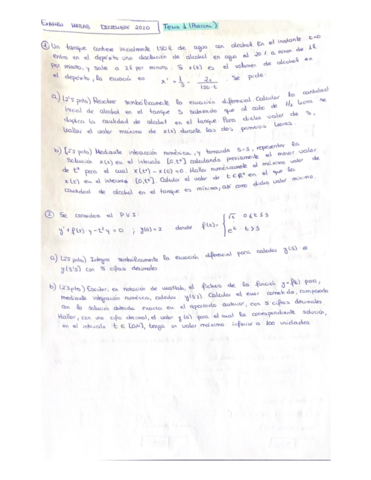 EXAMEN MATLAB DICIEMBRE 2020 Tema 1 (Parcial)
① Un tanque contiene inicialmente 150 l de agua con alcohol. En el instante t=0
entra en el depósito una disolución de alcohol en agua al 20% a razón de
por minuto, y sale a 2 l por minuto. Si x(t) es el volumen de alcohol en
el depósito, la ecuación es x' = 1/5 - 2x/(150-t). Se pide:
a) (2'5 ptos) Resolver simbólicamente la ecuación diferencial. Calcular la cantidad
inicial de alcohol en el tanque S sabiendo que al cabo de hora se
duplica la cantidad de alcohol en el tanque. Para dicho valor de S,
hallar el valor máximo de x(t) durante las dos primeras horas.
b) (2'5 ptos) Mediante integración numérica, y tomando S=3, representar la
solución x(t) en el intervalo [0,t*] calculando previamente el mayor valor
de t* para el cual x(t*) - x(0) = 0. Hallar numéricamente el máximo valor de
x(t) en el intervalo [0,t*]. Calcular el valor de t ∈ en el que la
cantidad de alcohol en el tanque es mínima, así como dicho valor mínimo.
② Se considera el P.V.I.
y' + f(t) y - t² y = 0 ; y(0) = 2 donde f(t) = { √t 0 ≤ t ≤ 3
e^t t > 3
a) (2'5 ptos) Integrar simbólicamente la ecuación diferencial para calcular y(3) e
y(3'5) con 5 cifras decimales
b) (2'5 ptos) Escribir, en notación de matlab, el fichero de la función y = f(t) para,
mediante integración numérica, calcular y(3'5). Calcular el error cometido, comparando
con la solución obtenida exacta en el apartado anterior, con 5 cifras decimales.
Hallar, con una cifra decimal, el valor y(0) para el cual la correspondiente solución,
en el intervalo t ∈ [0,4], tenga un valor máximo inferior a 100 unidades.